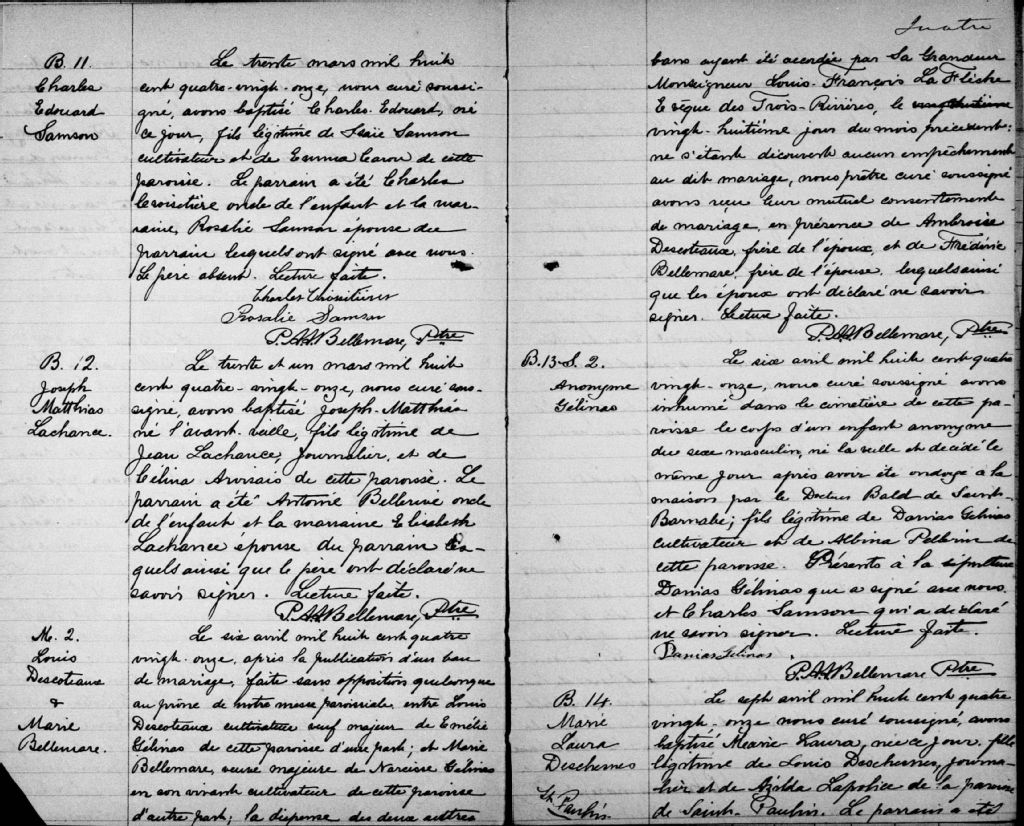 B. 11.
Charles
Edouard
Samson
Le trente mars mil huit
cent quatre-vingt-onze, nous curé soussi-
gné, avons baptisé Charles-Edouard, né
ce jour, fils légitime de Isaie Samson
cultivateur et de Emma Caron de cette
paroisse. Le parrain a été Charles
Croisetière oncle de l'enfant et la mar-
raine, Rosalie Samson épouse du
parrain lesquels ont signé avec nous.
Le père absent. Lecture faite.
Charles Croisetières
Rosalie Samson
P.A.A. Bellemare, Ptre
B. 12.
Joseph
Matthias
Lachance.
Le trente et un mars mil huit
cent quatre-vingt-onze, nous curé sous-
signé, avons baptisé Joseph-Matthias
né l'avant-veille, fils légitime de
Jean Lachance, Journalier, et de
Célina Arvisais de cette paroisse. Le
parrain a été Antoine Bellerive oncle
de l'enfant et la marraine Elisabeth
Lachance épouse du parrain les-
quels ainsi que le père ont déclaré ne
savoir signer. Lecture faite.
P.A.A. Bellemare, Ptre
M. 2.
Louis
Descoteaux
&
Marie
Bellemare.
Le six avril mil huit cent quatre
vingt-onze, après la publication d'un ban
de mariage, faite sans opposition quelconque
au prône de notre messe paroissiale, entre Louis
Descoteaux cultivateur veuf majeur de Emélie
Gélinas de cette paroisse d'une part; et Marie
Bellemare, veuve majeure de Narcisse Gélinas
en son vivant cultivateur de cette paroisse
d'autre part; la dispense des deux autres
Quatre
bans ayant été accordée par Sa Grandeur
Monseigneur Louis-François LaFlèche
Evêque des Trois-Rivières, le
vingt-huitième jour du mois précédent;
ne s'étant découvert aucun empêchement
au dit mariage, nous prêtre curé soussigné
avons reçu leur mutuel consentement
de mariage, en présence de Ambroise
Descoteaux, frère de l'époux, et de Frédéric
Bellemare, frère de l'épouse, lesquels ainsi
que les époux ont déclaré ne savoir
signer. Lecture faite.
P.A.A. Bellemare, Ptre
B.13-S. 2.
Anonyme
Gélinas
Le six avril mil huit cent quatre
vingt-onze, nous curé soussigné avons
inhumé dans le cimetière de cette pa-
roisse le corps d'un enfant anonyme
du sexe masculin, né la veille et décédé le
même jour après avoir été ondoyé à la
maison par le Docteur Bald de Saint-
Barnabé; fils légitime de Damias Gélinas
cultivateur et de Albina Pellerin de
cette paroisse. Présents à la sépulture
Damias Gélinas qui a signé avec nous
et Charles Samson qui a déclaré
ne savoir signer. Lecture faite.
Damias Gélinas.
P.A.A. Bellemare Ptre
B. 14.
Marie
Laura
Deschesnes
St. Paulin
Le sept avril mil huit cent quatre
vingt-onze nous curé soussigné, avons
baptisé Marie-Laura, née ce jour, fille
légitime de Louis Deschesnes, journa-
lier et de Azilda Lapolice de la paroisse
de Saint-Paulin. Le parrain a été